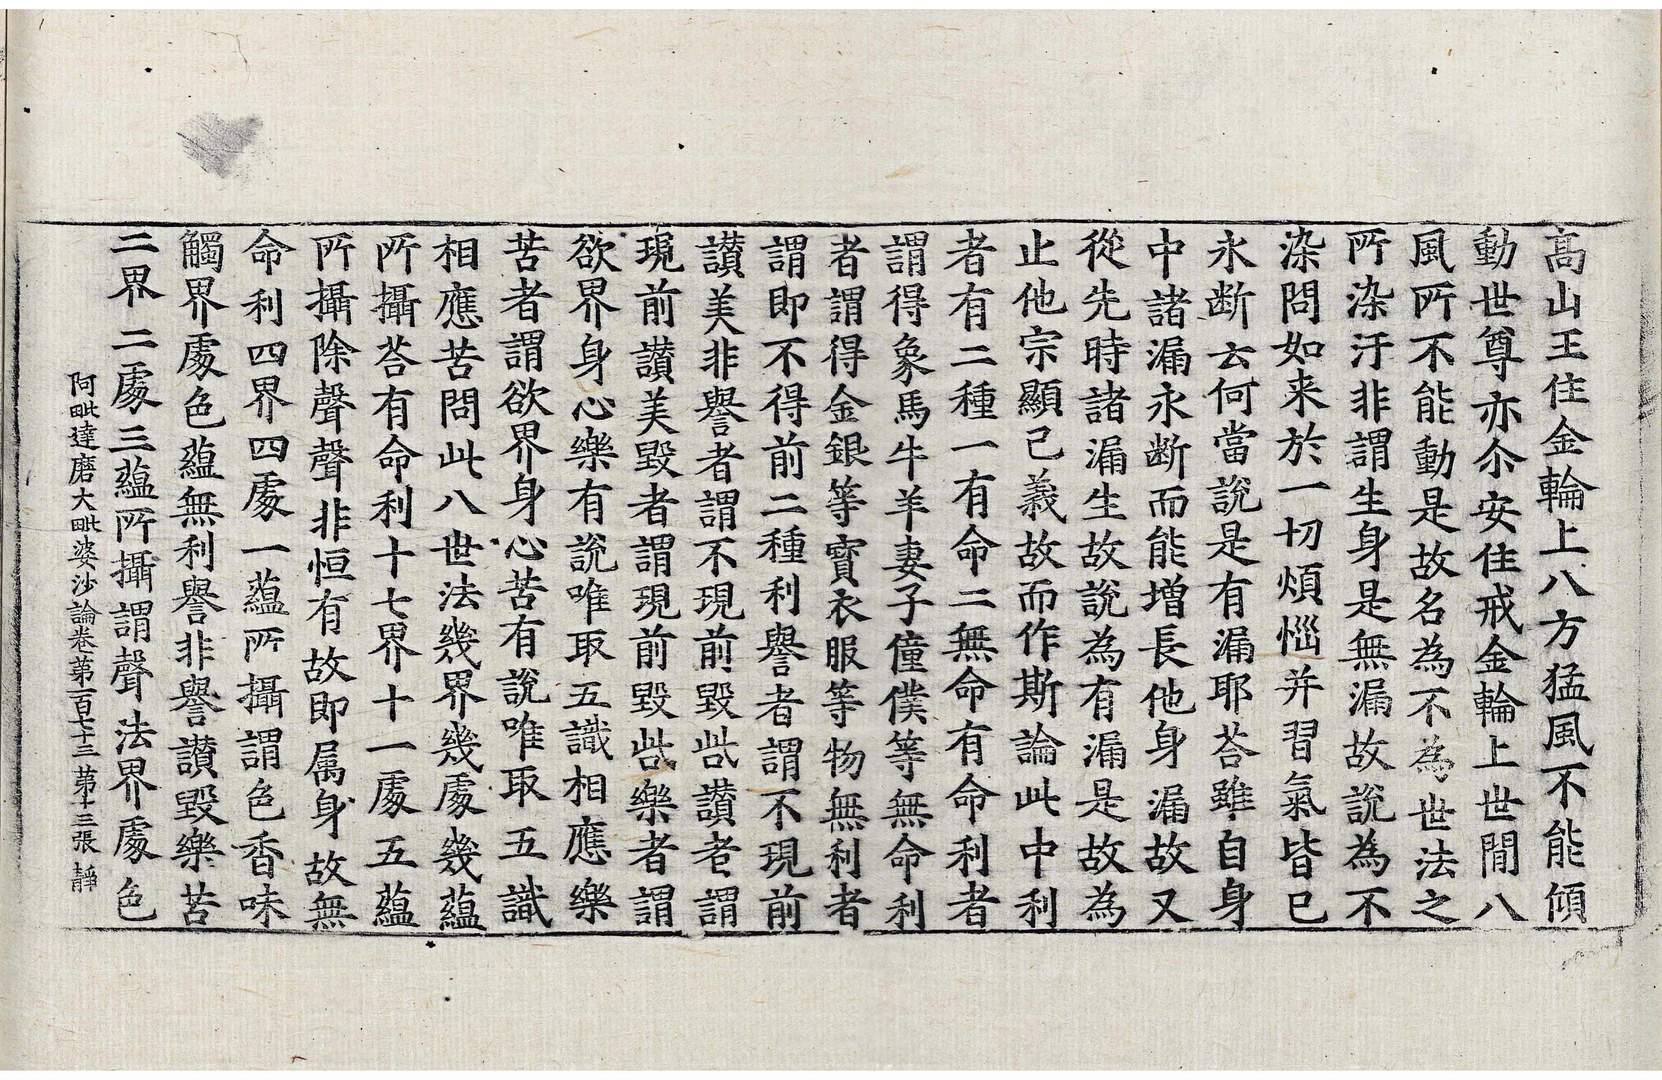 高山王住金輪上八方猛風不能傾
動世尊亦尒安住戒金輪上世閒八
風所不能動是故名為不為世法之
所染汙非謂生身是無漏故說為不
染問如来於一切煩惱并習氣皆已
永断云何當說是有漏耶荅雖自身
中諸漏永断而能增長他身漏故又
從先時諸漏生故說為有漏是故為
止他宗顯己義故而作斯論此中利
者有二種一有命二無命有命利者
謂得象馬牛羊妻子僮僕等無命利
者謂得金銀等寳衣服等物無利者
謂即不得前二種利譽者謂不現前
讃美非譽者謂不現前毀呰讃者謂
現前讃美毀者謂現前毀呰樂者謂
欲界身心樂有說唯取五識相應樂
苦者謂欲界身心苦有說唯取五識
相應苦問此八世法幾界幾處幾蘊
所攝荅有命利十七界十一處五蘊
所攝除聲聲非恒有故即属身故無
命利四界四處一蘊所攝謂色香味
觸界處色蘊無利譽非譽讃毀樂苦
二界二處三蘊所攝謂聲法界處色
阿毗達磨大毗婆沙論卷第一百七十三 第十三張 靜